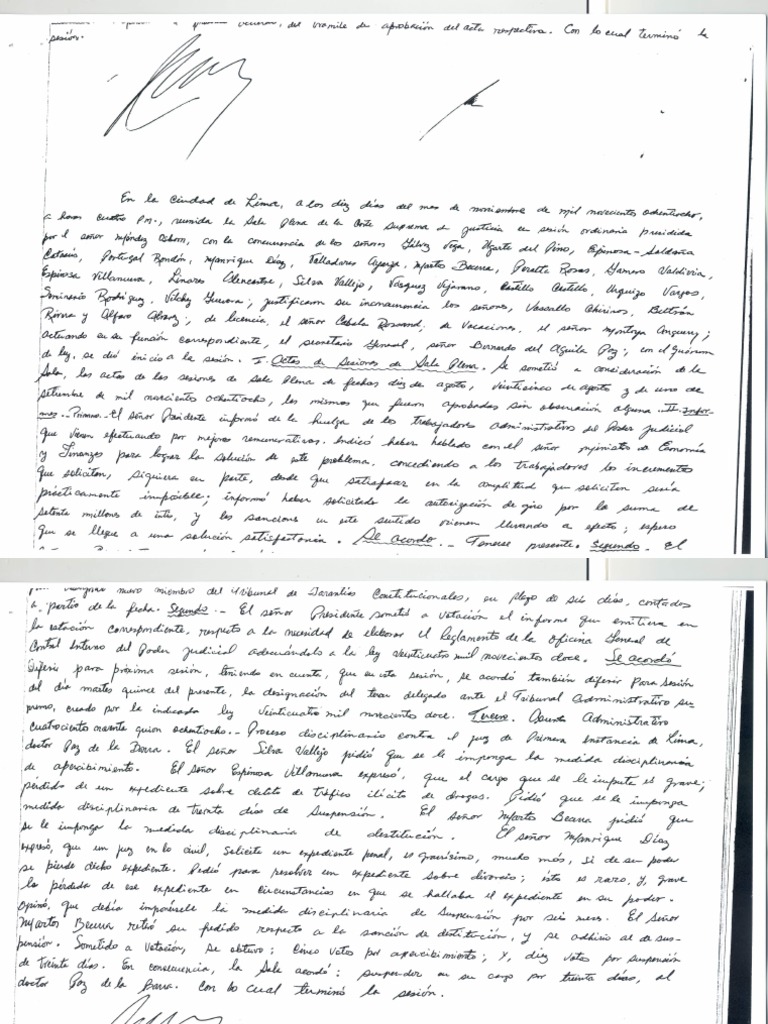 del trámite de aprobación del acta respectiva. Con lo cual terminó la
sesión.
En la ciudad de Lima, a los diez días del mes de noviembre de mil novecientos ochentiocho,
a horas cuatro p.m., reunida la Sala Plena de la Corte Suprema de Justicia en sesión ordinaria presidida
por el señor Méndez Osborn, con la concurrencia de los señores Gálvez Vega, Ugarte del Pino, Espinosa-Saldaña
Cataño, Portugal Rondón, Manrique Díaz, Valladares Ayarza, Martos Becerra, Peralta Rosas, Gamero Valdivia,
Espinosa Villanueva, Linares Alencastre, Silva Vallejo, Vásquez Vejarano, Castillo Castillo, Urquizo Vargas,
Seminario Rodríguez, Vilchez Guevara; justificaron su inconcurrencia los señores, Vassallo Chirinos, Beltrán
Rivera y Alfaro Alvarez; de licencia, el señor Catalá Rosand; de vacaciones, el señor Montoya Anguerry;
actuando en su función correspondiente, el secretario General, señor Bernardo del Aguila Paz; con el quórum
de ley, se dió inicio a la sesión. I- Actas de Sesiones de Sala Plena. Se sometió a consideración de la
Sala, las actas de las sesiones de Sala Plena de fechas diez de agosto, veinticinco de agosto y de uno de
setiembre de mil novecientos ochentiocho, las mismas que fueron aprobadas sin observación alguna. II. Infor-
mes.- Primero.- El señor Presidente informó de la huelga de los trabajadores administrativos del Poder Judicial
que vienen efectuando por mejoras remunerativas. Indicó haber hablado con el señor Ministro de Economía
y Finanzas para lograr la solución de este problema, concediendo a los trabajadores los incrementos
que solicitan, siquiera en parte, desde que satisfacer en la amplitud que soliciten sería
prácticamente imposible; informó haber solicitado la autorización de giro por la suma de
setenta millones de intis, y las sanciones en este sentido vienen llevando a efecto; espera
que se llegue a una solución satisfactoria. Se acordó.- Tenerse presente. Segundo. El
nuevo miembro del Tribunal de Garantías Constitucionales, en plazo de seis días, contados
a partir de la fecha. Segundo.- El señor Presidente sometió a votación el informe que emitiera en
la estación correspondiente, respecto a la necesidad de elaborar el Reglamento de la Oficina General de
Control Interno del Poder Judicial adecuándolo a la ley veinticuatro mil novecientos doce. Se acordó
Diferir para próxima sesión, teniendo en cuenta, que en esta sesión, se acordó también diferir para sesión
del día martes quince del presente, la designación del delegado ante el Tribunal Administrativo su-
premo, creado por la indicada ley veinticuatro mil novecientos doce. Tercero. Asunto Administrativo
cuatrocientos noventa guion ochentiocho.- Proceso disciplinario contra el juez de Primera Instancia de Lima,
doctor Paz de la Barra. El señor Silva Vallejo pidió que se le imponga la medida disciplinaria
de apercibimiento. El señor Espinosa Villanueva expresó, que el cargo que se le imputa es grave;
pérdida de un expediente sobre delito de tráfico ilícito de drogas. Pidió que se le imponga
medida disciplinaria de treinta días de suspensión. El señor Martos Becerra pidió que
se le imponga la medida disciplinaria de destitución. El señor Manrique Díaz
expresó, que un juez en lo civil, solicite un expediente penal, es gravísimo, mucho más, si de su poder
se pierde dicho expediente. Pedió para resolver un expediente sobre divorcio; esto es raro, y, grave
la pérdida de ese expediente en circunstancias en que se hallaba el expediente en su poder.
Opinó, que debía imponérsele la medida disciplinaria de suspensión por seis meses. El señor
Martos Becerra retiró su pedido respecto a la sanción de destitución, y se adhirió al de sus-
pensión. Sometido a votación, se obtuvo: cinco votos por apercibimiento; y, diez votos por suspensión
de treinta días. En consecuencia, la Sala acordó: suspender en su cargo por treinta días, al
doctor Paz de la Barra. Con lo cual terminó la sesión.